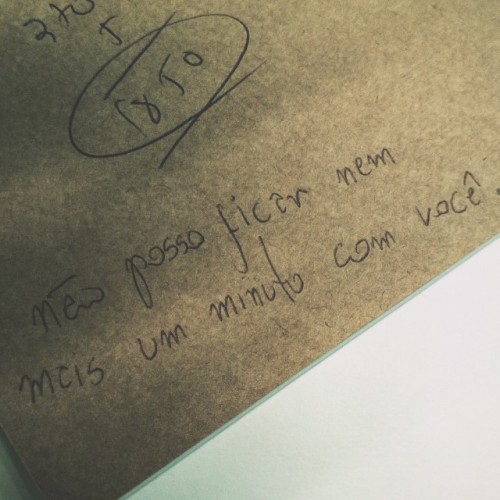 370
5
1850
não posso ficar nem
mais um minuto com você